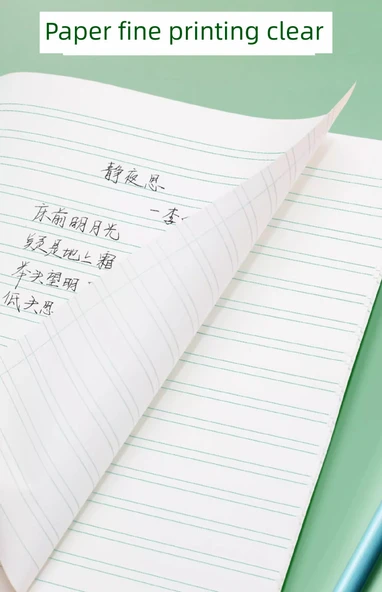 Paper fine printing clear
静夜思
一李
床前明月光
疑是地上霜
举头望明
低头思